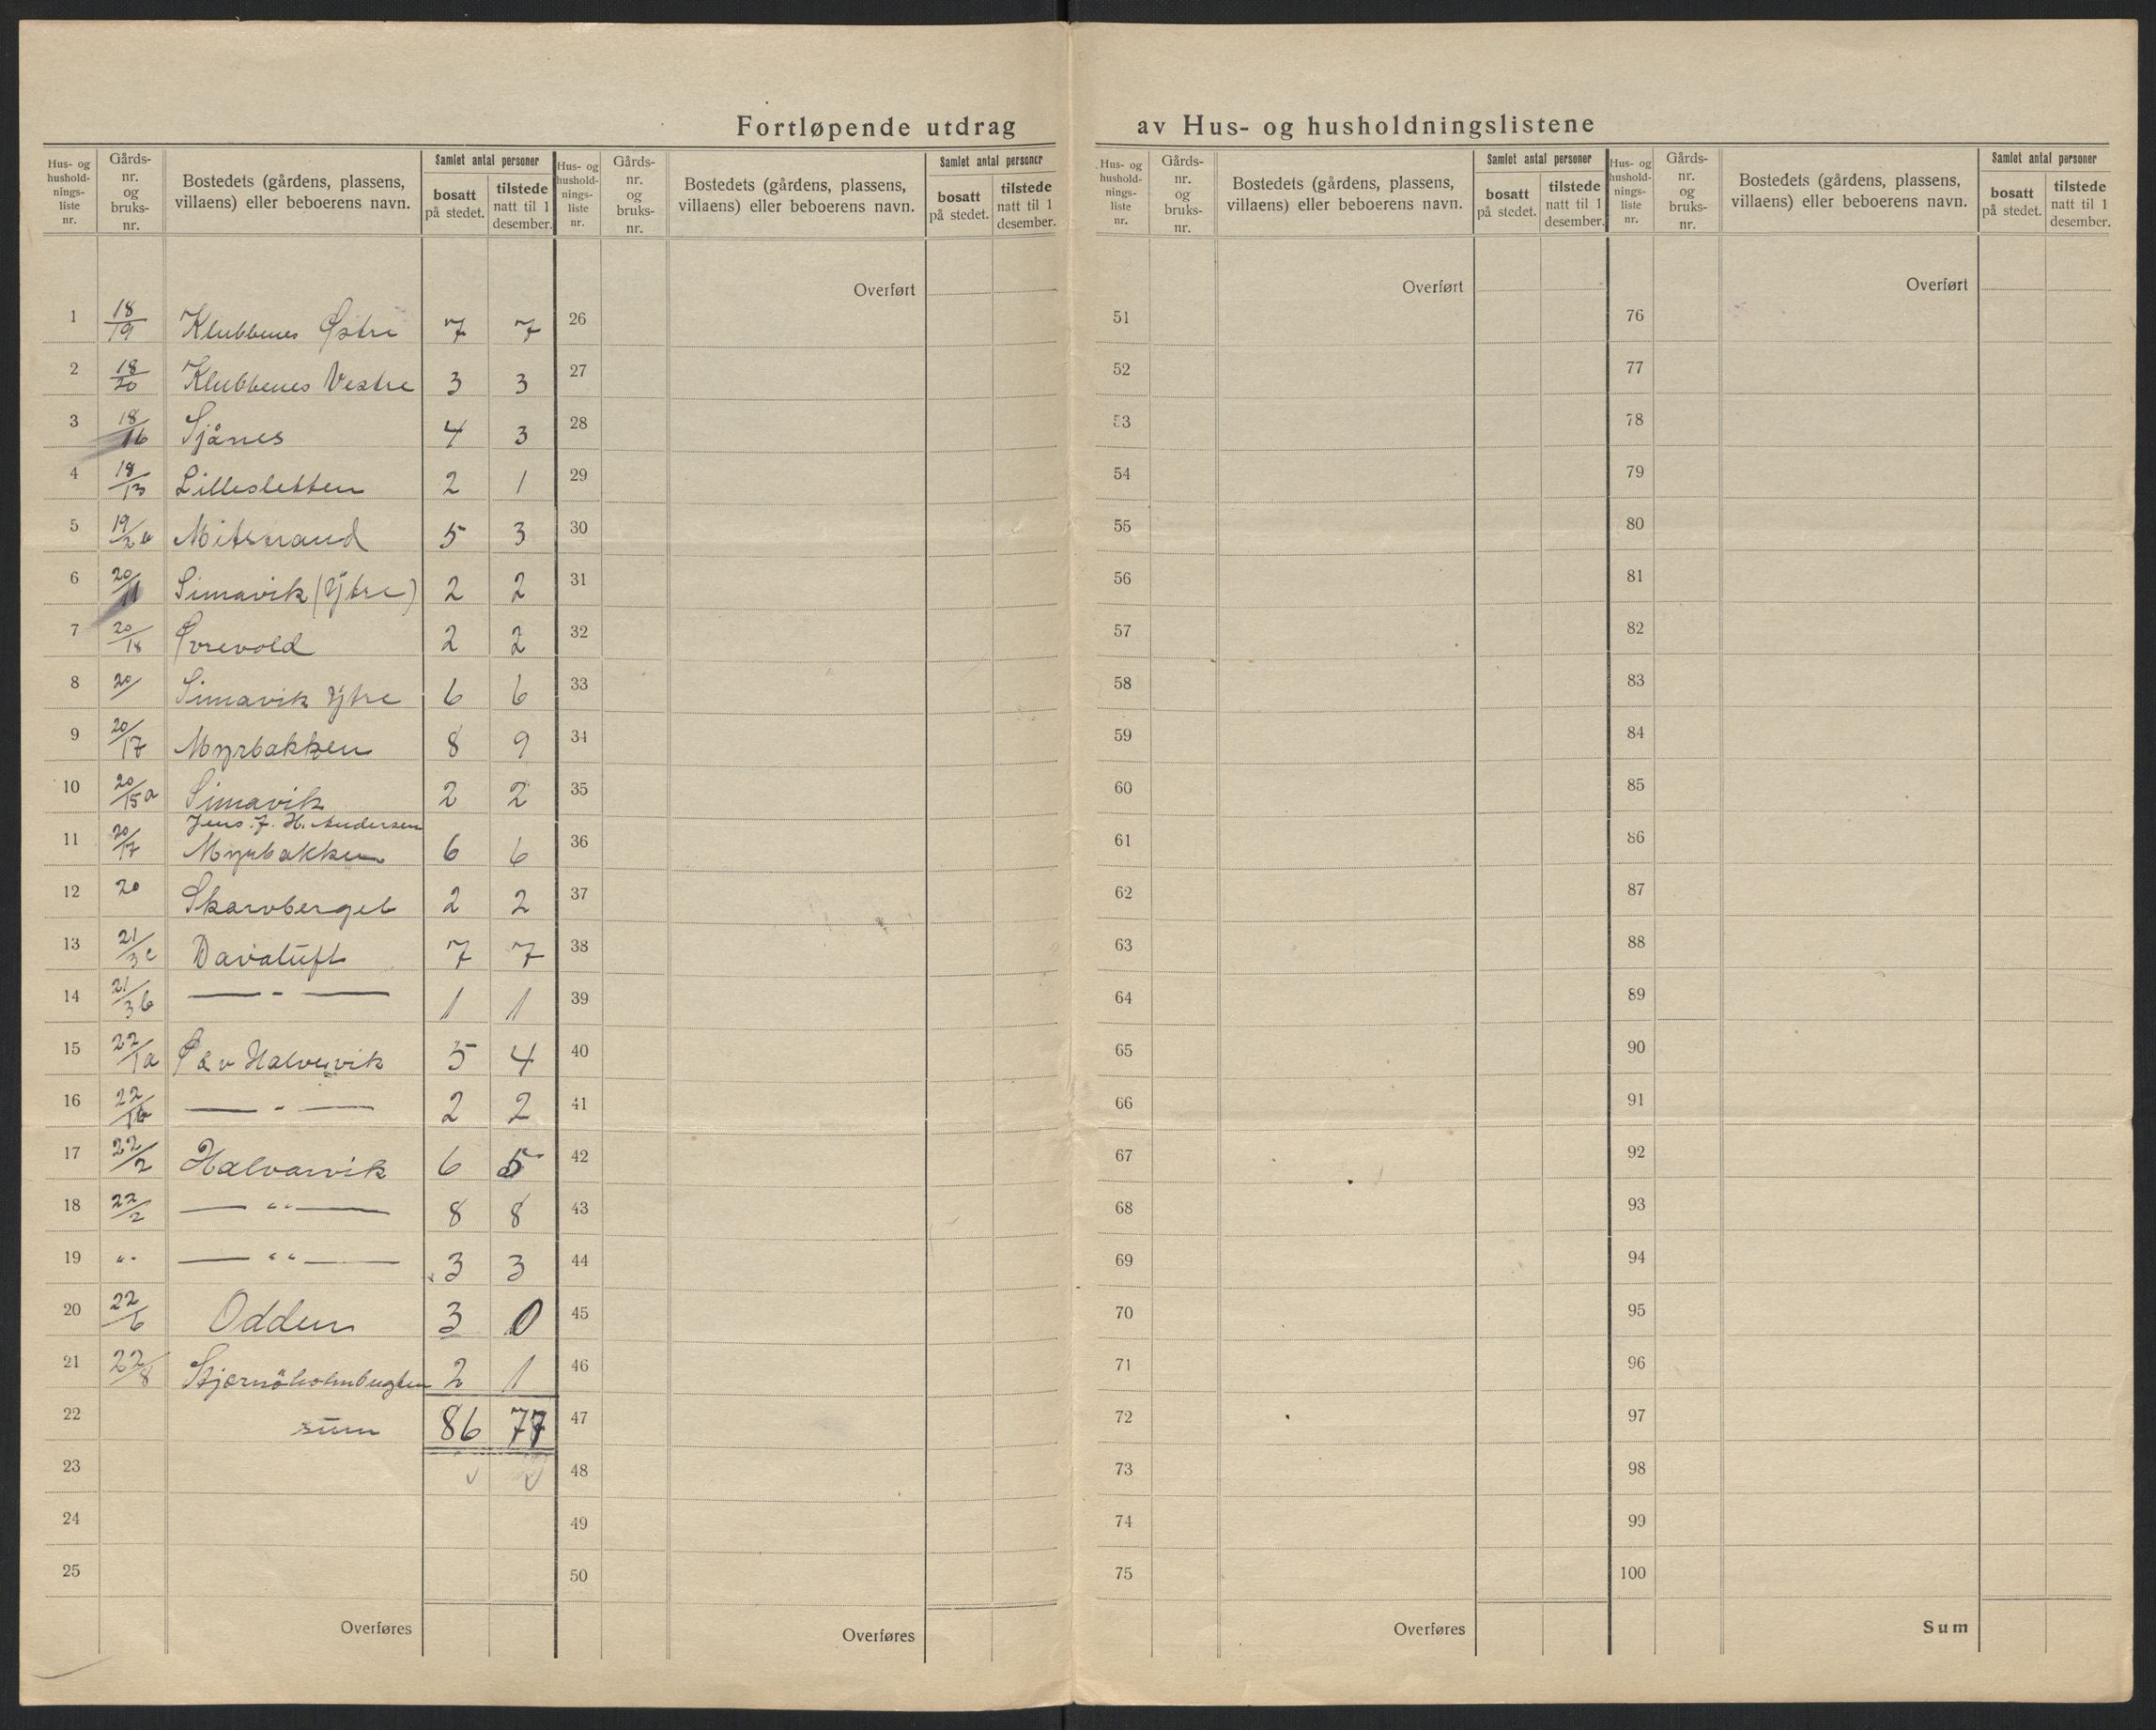 Fortløpende utdrag av Hus- og husholdningslistene
Hus- og husholdnings-liste nr. Gårds-nr. og bruks-nr. Bostedets (gårdens, plassens, villaens) eller beboerens navn. Samlet antal personer bosatt på stedet. tilstede natt til 1 desember.
Hus- og husholdnings-liste nr. Gårds-nr. og bruks-nr. Bostedets (gårdens, plassens, villaens) eller beboerens navn. Samlet antal personer bosatt på stedet. tilstede natt til 1 desember.
Hus- og hushold-nings-liste nr. Gårds-nr. og bruks-nr. Bostedets (gårdens, plassens, villaens) eller beboerens navn. Samlet antal personer bosatt på stedet. tilstede natt til 1 desember.
Hus- og hushold-nings-liste nr. Gårds-nr. og bruks-nr. Bostedets (gårdens, plassens, villaens) eller beboerens navn. Samlet antal personer bosatt på stedet. tilstede natt til 1 desember.
Overført Overført Overført
1 18/19 Klubbenes Østre 7 7 26 51 76
2 18/20 Klubbenes Vestre 3 3 27 52 77
3 18/16 Sjånes 4 3 28 53 78
4 18/13 Lillesletten 2 1 29 54 79
5 19/2 5 3 30 55 80
6 20/11 Simavik (Ytre) 2 2 31 56 81
7 20/18 Øvrevold 2 2 32 57 82
8 20/ Simavik Ytre 6 6 33 58 83
9 20/17 Myrbakken 8 9 34 59 84
10 20/15a Simavik 2 2 35 60 85
Jens. J. H. Andersen
11 20/17 Myrbakken 6 6 36 61 86
12 20 Skarvberget 2 2 37 62 87
13 21/3c Davatuft 7 7 38 63 88
14 21/3b — " — 1 1 39 64 89
15 22/1a 5 4 40 65 90
16 22/1b — " — 2 2 41 66 91
17 22/2 Halvarvik 6 5 42 67 92
18 22/2 — " — 8 8 43 68 93
19 " — " — 3 3 44 69 94
20 22/6 Odden 3 0 45 70 95
21 22/8 Stjernöholmbugten 2 1 46 71 96
22 sum 86 77 47 72 97
23 48 73 98
24 49 74 99
25 50 75 100
Overføres Overføres Overføres Sum